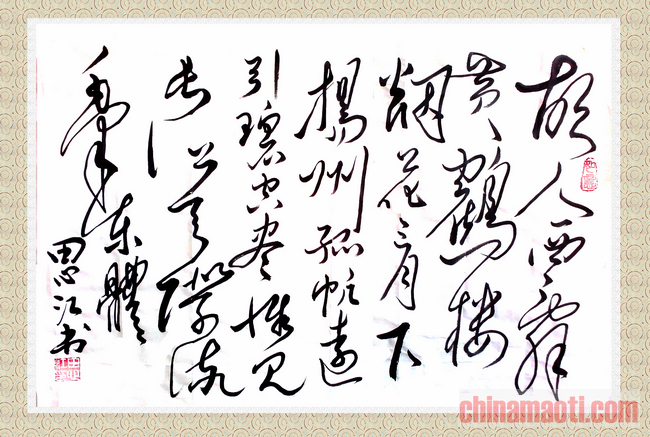 故人西辞
黄鶴楼
烟花三月下
揚州孤帆遠
引碧空尽惟见
长江天際流
東體
田思江书
chinamaoti.com